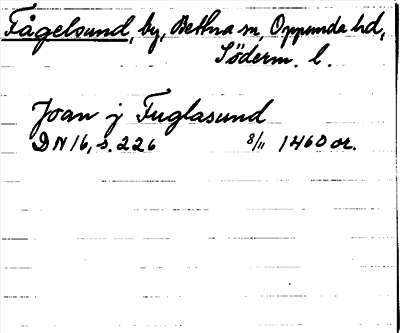 Fågelsund, by, Bettna sn, Oppunda hd,
Söderm. l.
Joan j Fuglasund
DN 16, s. 226 8/11 1460 or.